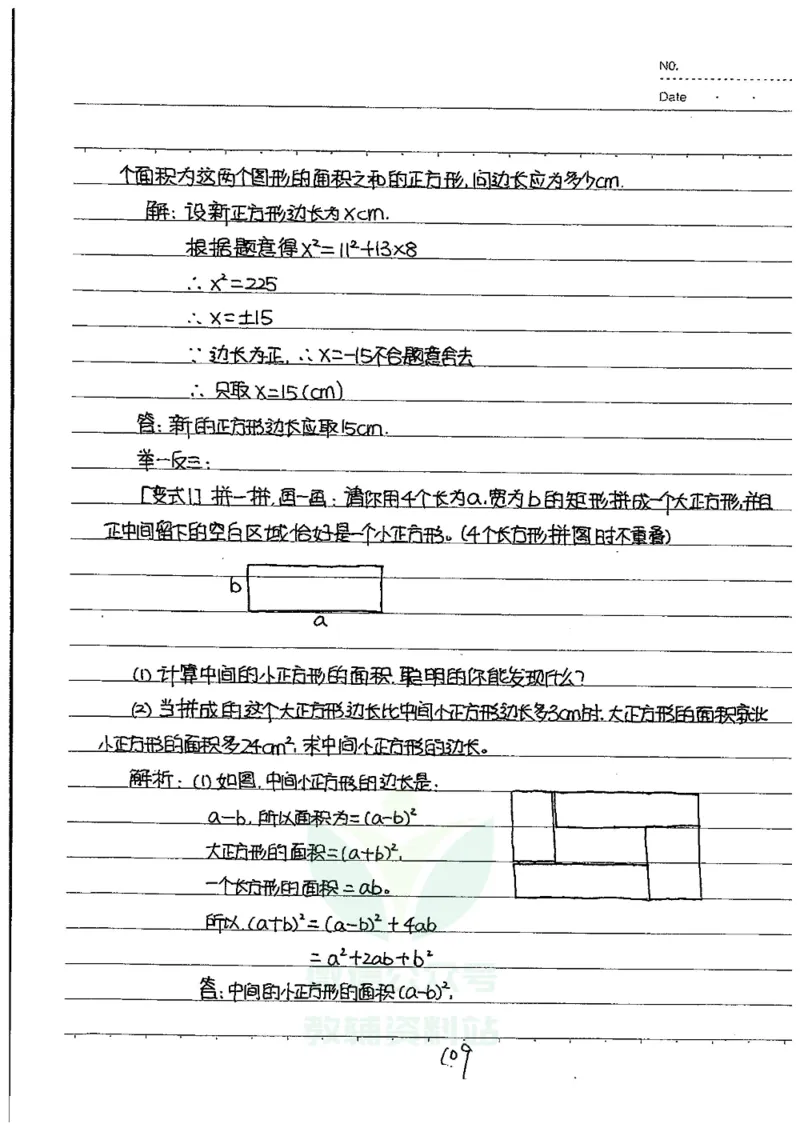 NO.
Date
个面积为这两个图形的面积之和的正方形,问边长应为多少cm.
解:设新正方形边长为xcm.
根据题意得x²=11²+13×8
∴x²=225
∴x=±15
∵边长为正,∴x=-15不合题意舍去
∴只取x=15(cm)
答:新的正方形边长应取15cm.
举一反三:
[变式1]拼一拼,画一画:请你用4个长为a,宽为b的矩形拼成一个大正方形,并且
正中间留下的空白区域恰好是一个小正方形。(4个长方形拼图时不重叠)
b
a
(1)计算中间的小正方形的面积,聪明的你能发现什么?
(2)当拼成的这个大正方形边长比中间小正方形边长多3cm时,大正方形的面积就比
小正方形的面积多24cm²,求中间小正方形的边长。
解析:(1)如图,中间小正方形的边长是:
a-b,所以面积为=(a-b)²
大正方形的面积=(a+b)²,
一个长方形的面积=ab。
所以,(a+b)²=(a-b)²+4ab
=a²+2ab+b²
答:中间的小正方形的面积(a-b)²;
微信公众号
教辅资料站
109